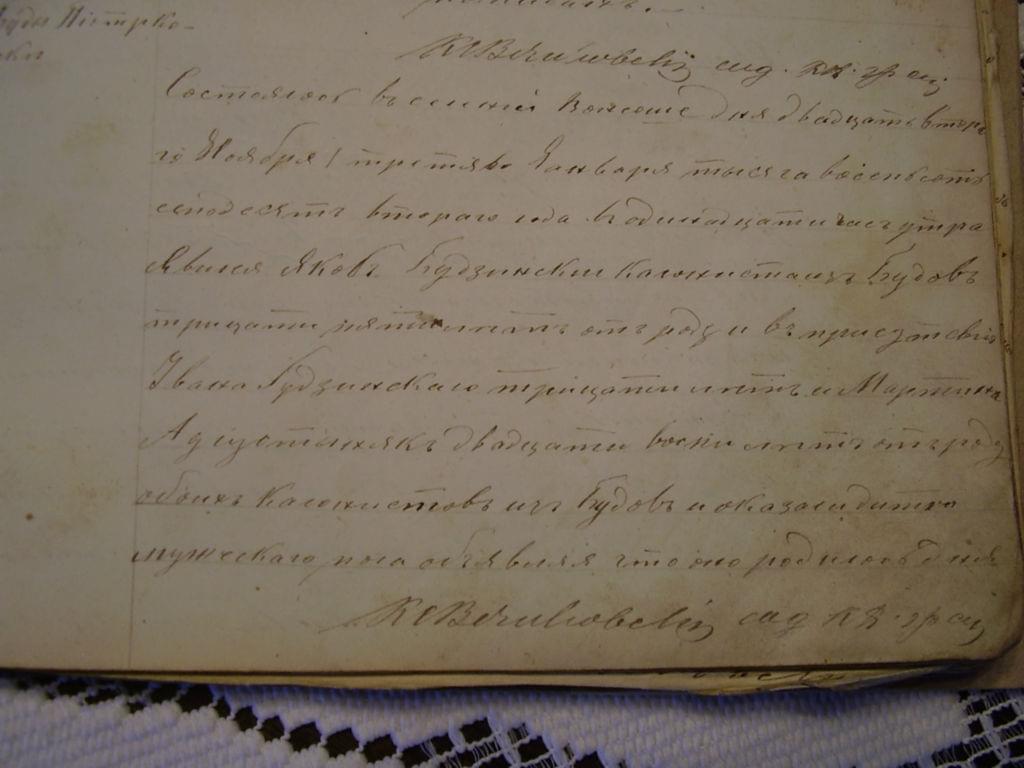 Буды Піотрко-
ски
К С Вечилковскій сод. кн. гр. сос.
Состоялось въ селеніи дня двадцать втора-
го Ноября / третяго Января тысяча восемьсотъ
семдесятъ втораго года въ одинадцати часъ утра
Явился Яковъ Будзински Калонистъ изъ Будовъ
тридцати пяти лѣтъ отъ роду и въ присутствіи
Ивана Будзинскаго тридцати лѣтъ и Мартина
Аугустынякъ двадцати восми лѣтъ отъ роду
обоихъ Калонистовъ изъ Будовъ и оказалъ дитя
мужескаго пола объявляя что оно родилось дня
К С Вечилковскій сод. кн. гр. сос.